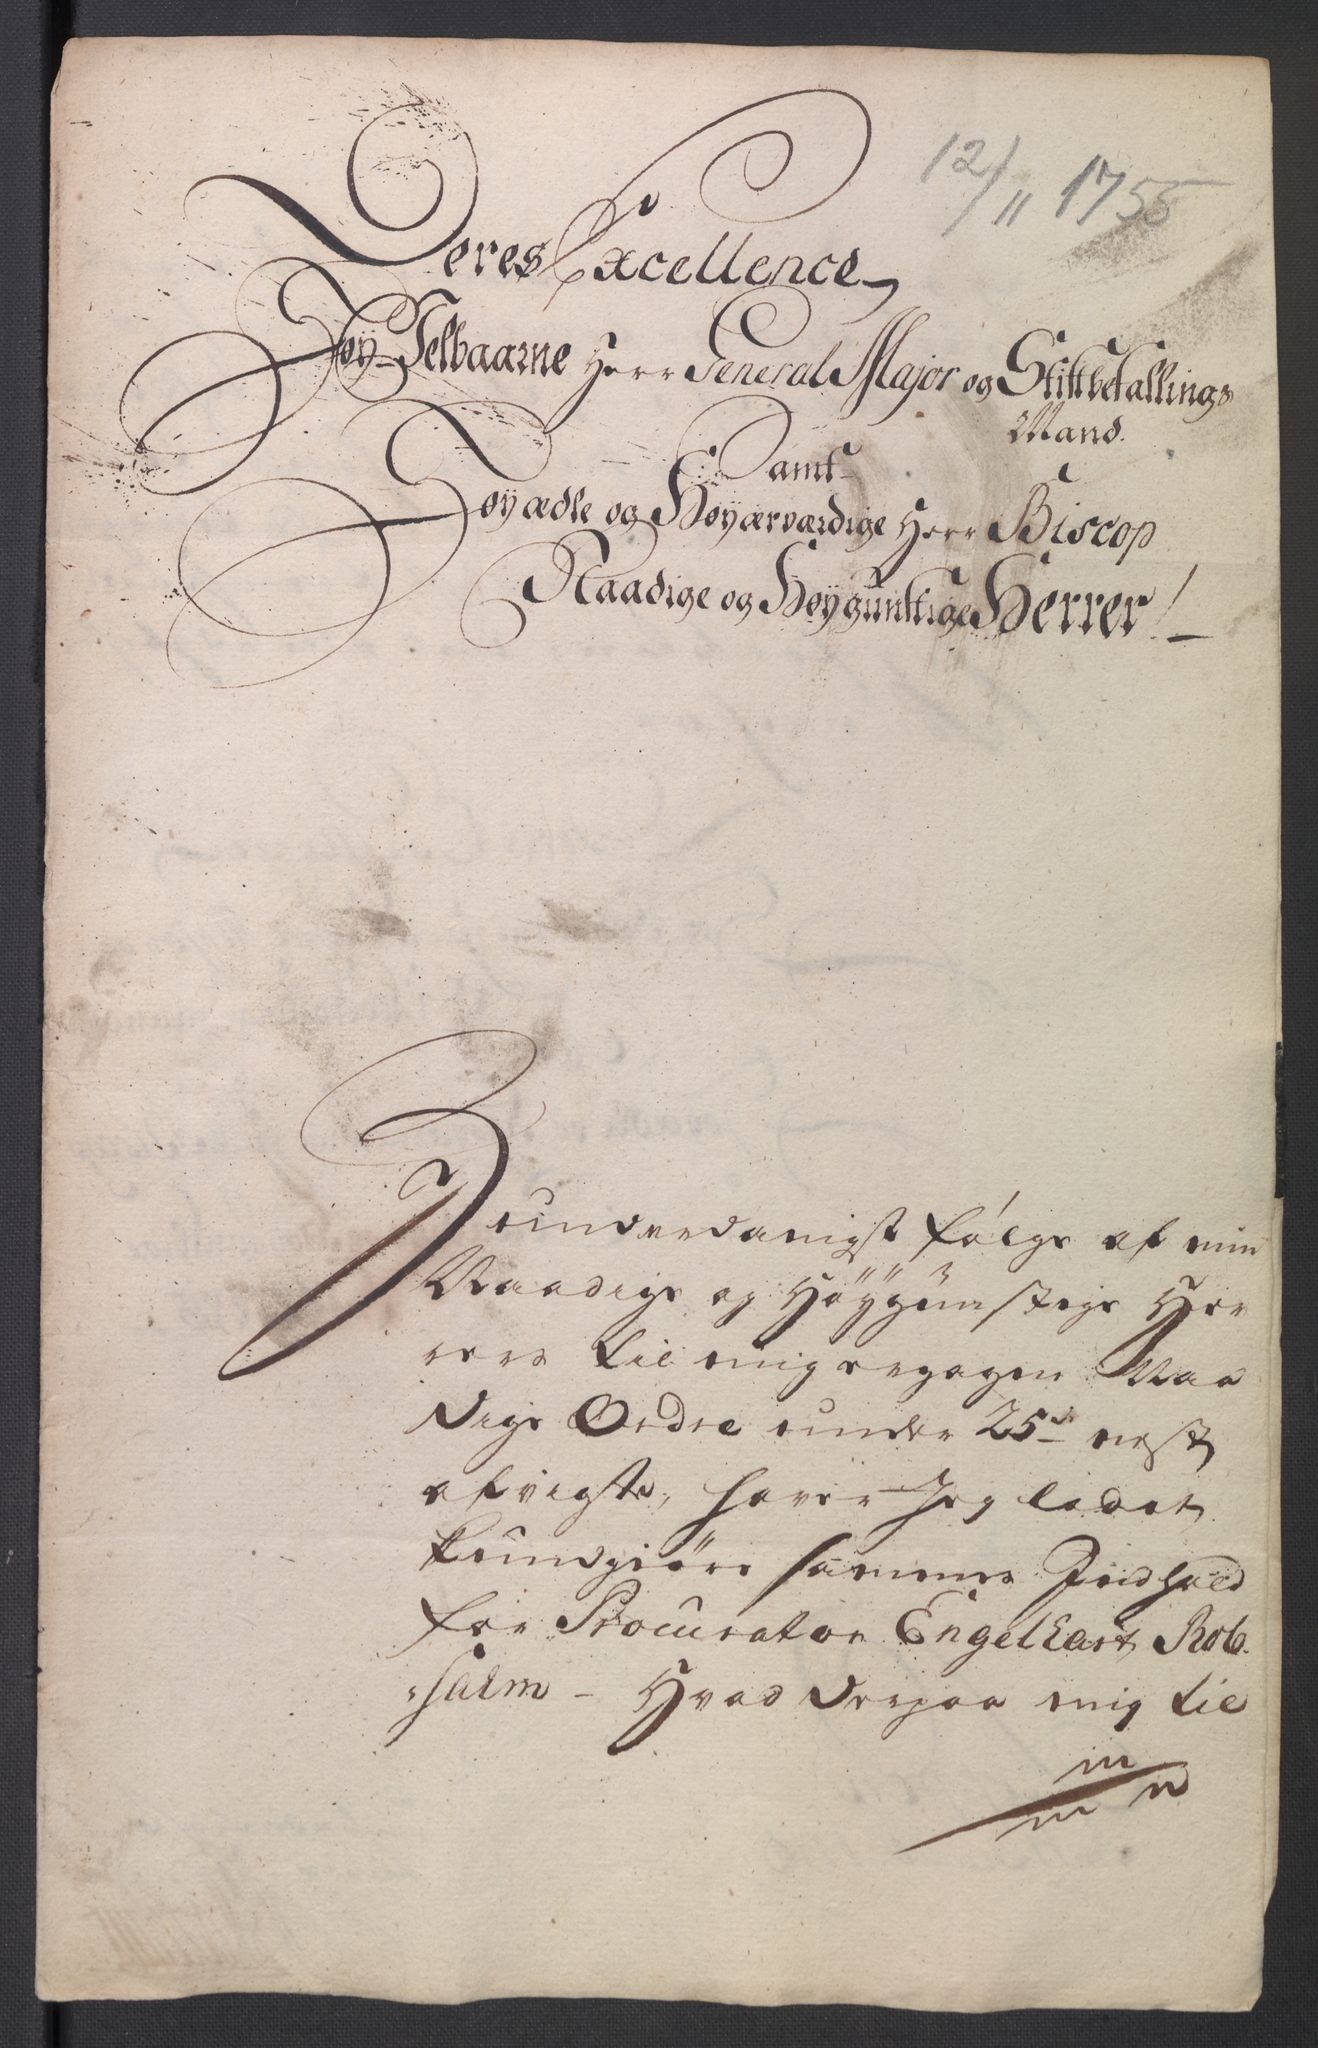 12/11 1755
Deres Excellence
Høy-Velbaarne Herr General Major og Stiftbefallings
Mand.
Samt
Høyædle og Høyærværdige Herr Biscop
Naadige og Høygunstige Herrer!
I underdanigst følge af min
Naadige og Høÿgunstige Her
rers til mig ergagen Naa
dige Ordre under 25de nest
afvigte, haver Jeg ladet
kundgiøre sammes Indhold
for Procurator Engelhart Rob
sahm - Hvad derpaa mig til